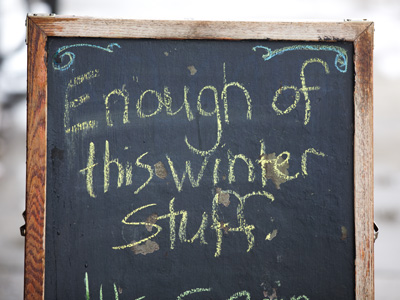 Enough of
this winter
stuff.